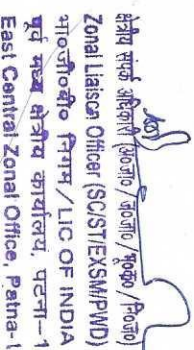 क्षेत्रीय संपर्क अधिकारी (अ०जा० ज०जा० / भू०पू०सै० / वि०ज०)
Zonal Liaison Officer (SC/ST/EXSM/PWD)
भा०जी०बी० निगम / LIC OF INDIA
पूर्व मध्य क्षेत्रीय कार्यालय, पटना-1
East Central Zonal Office, Patna-1